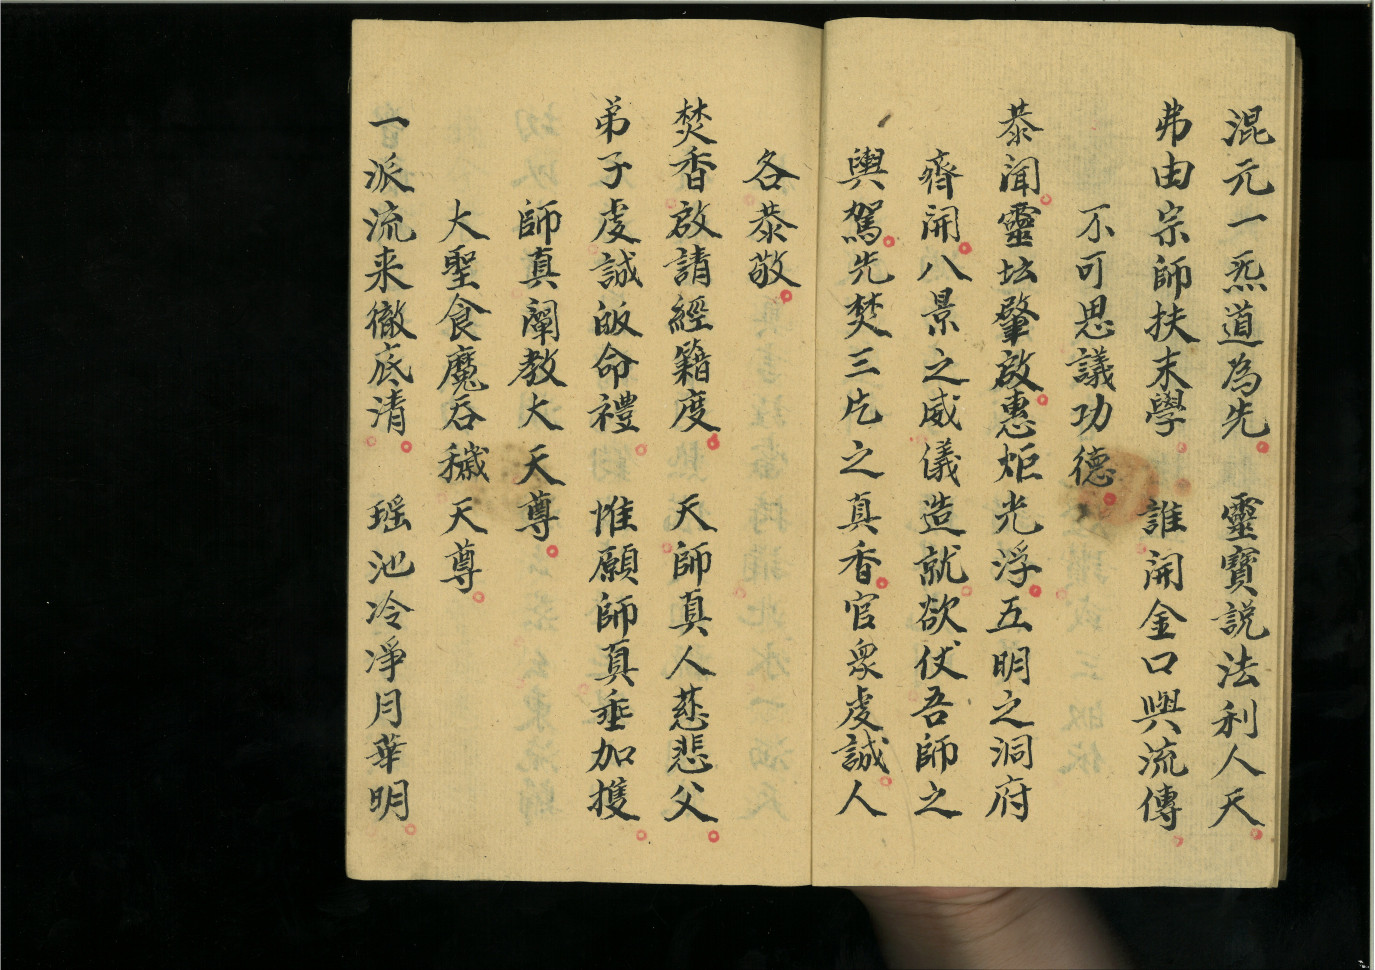 混元一炁道為先。靈寶説法利人天。
弗由宗師扶末學。誰開金口與流傳。
不可思議功德。
恭聞。靈坛肇啟。惠炬光浮。五明之洞府
齊開。八景之威儀造就。欲仗吾師之
輿駕。先焚三片之真香。官衆虔誠。人
各恭敬。
焚香啟請經籍度。天師真人慈悲父。
弟子虔誠皈命禮。惟願師真垂加擭。
師真闡教大天尊。
大聖食魔吞穢天尊。
一派流来徹底清。瑶池冷凈月華明。